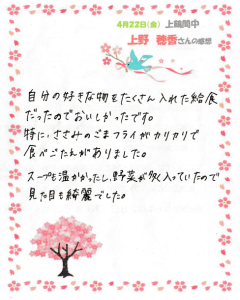 4月22日(金) 上鶴間中
上野 穂香さんの感想
自分の好きな物をたくさん入れた給食
だったのでおいしかったです。
特に、ささみのごまフライがカリカリで
食べごたえがありました。
スープも温かかったし、野菜が多く入っていたので
見た目も綺麗でした。